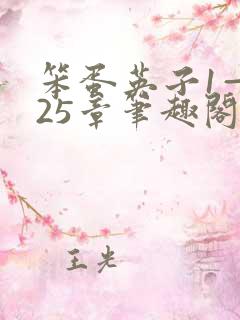 笨蛋英子1—
25章笔趣阁
王光